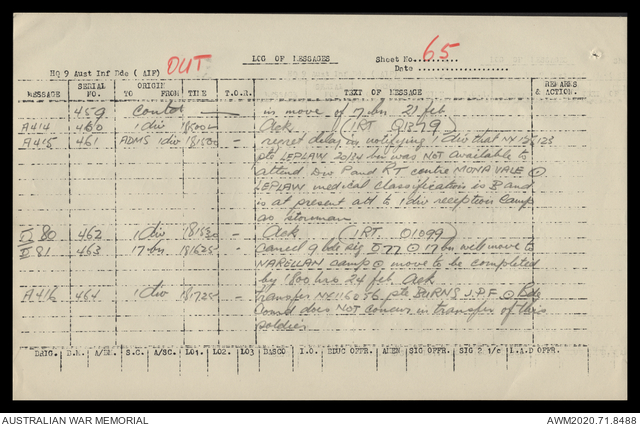 OUT
LOG OF MESSAGES
Sheet No......... 65
Date ....................
HQ 9 Aust Inf Bde (AIF)
MESSAGE SERIAL NO. ORIGIN TO FROM TIME T.O.R. TEXT OF MESSAGE REMARKS & ACTION.
459 Contd — in move of 7 bn 21 feb
A414 460 1 div - Ask (IRT O1379)
A415 461 ADMS 1 div 181530 - regret delay in notifying 1 div that
pte LEPLAW 20/34 bn was NOT available to
attend Div P and RT centre MONA VALE ⊙
LEPLAW medical classification is B and
is at present att to 1 div reception Camp
as storeman
80 462 1 div 181530 - Ask (IRT O1099)
81 463 17 bn 181625 - Cancel 9 bde sig O77 ⊙ 17 bn will move to
NARELLAN camp ⊙ move to be completed
by 1800 hrs 24 feb. Ask
A416 464 1 div 181725 - transfer NX116056 pte BURNS J.P.F ⊙ Bde
Comd does NOT concur in transfer of this
soldier
BRIG. B.M. A/BM. S.C. A/SC. LO1. LO2. LO3 BASCO I.O. EDUC OFFR. AMEN SIG OFFR. SIG 2 i/c L.A.D OFFR.
AUSTRALIAN WAR MEMORIAL
AWM2020.71.8488